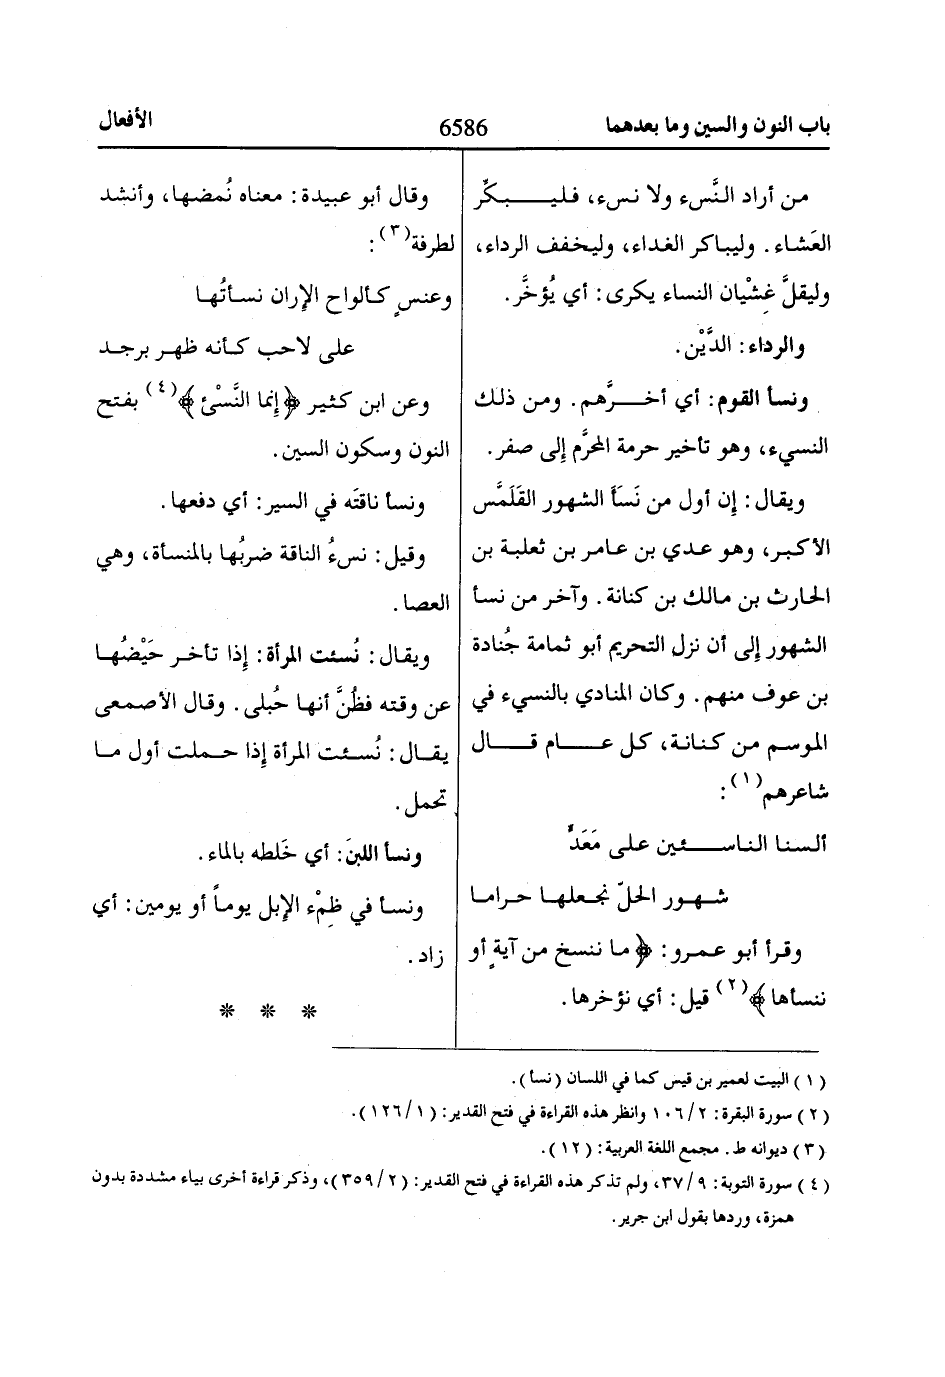 باب النون والسين وما بعدهما
6586
الأفعال
من أراد النَّسء ولا نسء، فليـبـكِّر
العَشاء. وليباكر الغداء، وليخفف الرداء،
وليقلَّ غِشْيان النساء يكرى: أي يُؤخَّر.
والرداء: الدَّيْن.
ونسأ القوم: أي أخـرَّهم. ومن ذلك
النسيء، وهو تأخير حرمة المحرَّم إلى صفر.
ويقال: إن أول من نَسَأ الشهور القَلَمَّس
الأكبر، وهو عدي بن عامر بن ثعلبة بن
الحارث بن مالك بن كنانة. وآخر من نسأ
الشهور إلى أن نزل التحريم أبو ثمامة جُنادة
بن عوف منهم. وكان المنادي بالنسيء في
الموسم من كنانة، كل عـام قـال
شاعرهم(١):
ألسنا الناسـئين على مَعَدٍّ
شهور الحلّ نجعلها حراما
وقرأ أبو عمرو: ﴿ما ننسخ من آيةٍ أو
ننسأها﴾(٢) قيل: أي نؤخرها.
وقال أبو عبيدة: معناه نُمضها، وأنشد
لطرفة(٣):
وعنسٍ كألواح الإران نسأتُها
على لاحب كأنه ظهر برجد
وعن ابن كثير ﴿إنما النَّسْئ﴾(٤) بفتح
النون وسكون السين.
ونسأ ناقتَه في السير: أي دفعها.
وقيل: نسءُ الناقة ضربُها بالمنسأة، وهي
العصا.
ويقال: نُسئت المرأة: إذا تأخر حَيْضُها
عن وقته فظُنَّ أنها حُبلى. وقال الأصمعى
يقال: نُسئت المرأة إذا حملت أول ما
تحمل.
ونسأ اللبنَ: أي خَلطه بالماء.
ونسأ في ظِمْء الإبل يوماً أو يومين: أي
زاد.
* * *
(١) البيت لعمير بن قيس كما في اللسان (نسأ).
(٢) سورة البقرة: ١٠٦/٢ وانظر هذه القراءة في فتح القدير: (١٢٦/١).
(٣) ديوانه ط. مجمع اللغة العربية: (١٢).
(٤) سورة التوبة: ٣٧/٩، ولم تذكر هذه القراءة في فتح القدير: (٣٥٩/٢)، وذكر قراءة أخرى بياء مشددة بدون
همزة، وردها بقول ابن جرير.